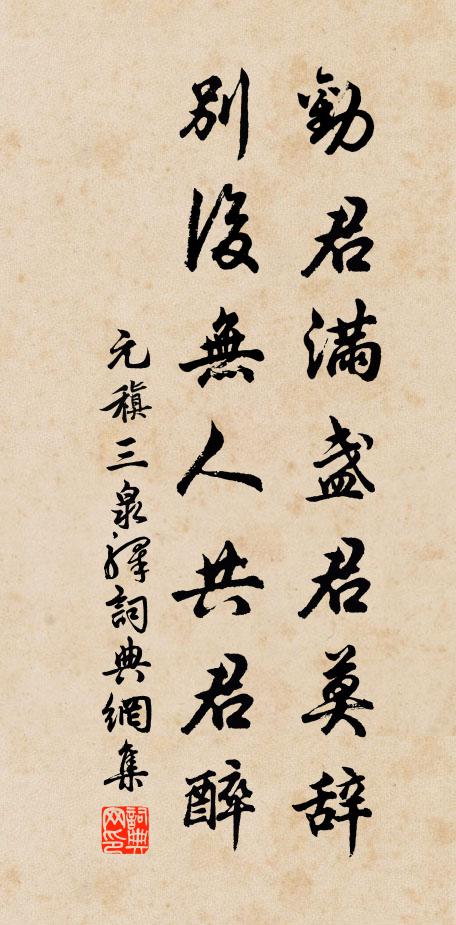 勸君滿盏君莫辞
别後無人共君醉
元稹三泉驛詞典網集
詞典网印